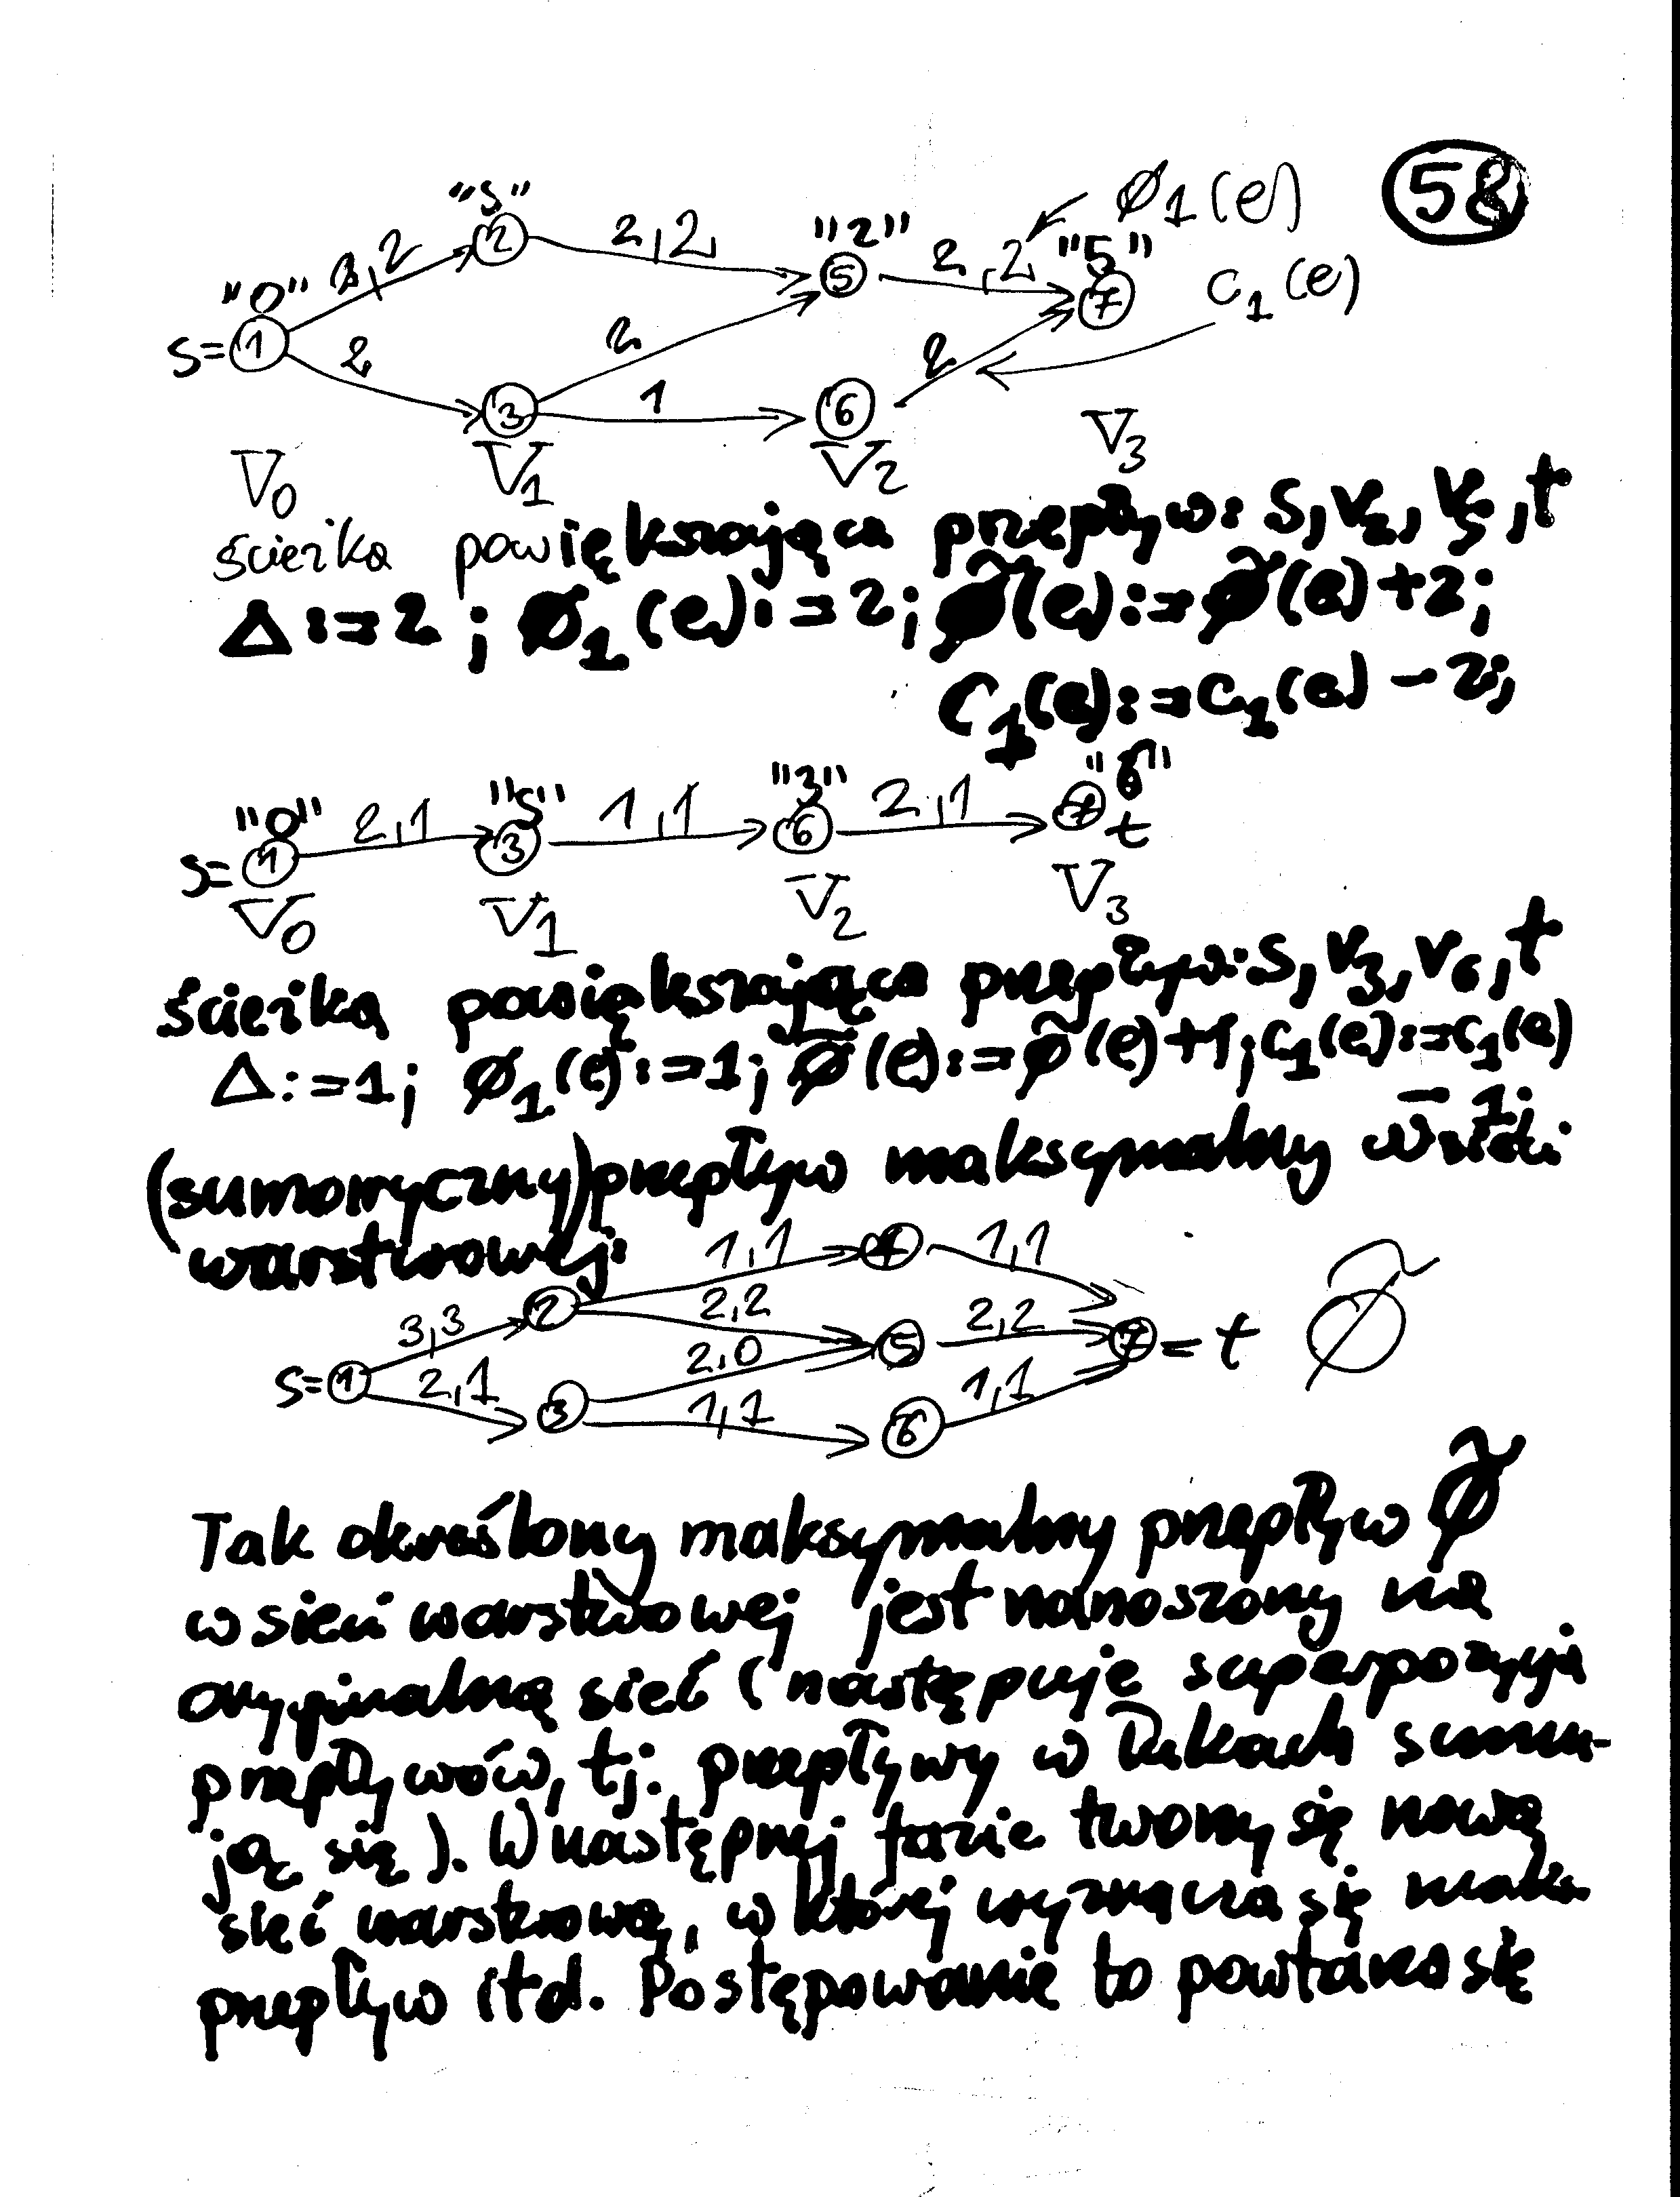 58
"s" "2" "5" ϕ1(e)
"0" 2 2,2 5 2,2 7 c1(e)
s= 1 2 2 2
3 1 6
V0 V1 V2 V3
ścieżka powiększająca przepływ: s, v2, v5, t
Δ:=2; ϕ1(e):=2; ϕ̃(e):=ϕ̃(e)+2;
C1(e):=C1(e)-2;
"0" 2,1 "s" 1,1 "3" 2,1 "6"
s= 1 3 6 7 t
V0 V1 V2 V3
ścieżka powiększająca przepływ: s, v3, v6, t
Δ:=1; ϕ1(e):=1; ϕ̃(e):=ϕ̃(e)+1; c1(e):=c1(e)
-1;
(sumaryczny) przepływ maksymalny w sieci
warstwowej:
1,1 4 1,1
3,3 2 2,2 2,2
s= 1 2,1 2,0 5 7 = t ϕ̃
3 1,1 6 1,1
Tak określony maksymalny przepływ ϕ̃
w sieci warstwowej jest nanoszony na
oryginalną sieć (następuje superpozycja
przepływów, tj. przepływy w łukach sumu-
ją się). W następnej fazie tworzy się nową
sieć warstwową, w której wyznacza się maks.
przepływ itd. Postępowanie to powtarza się